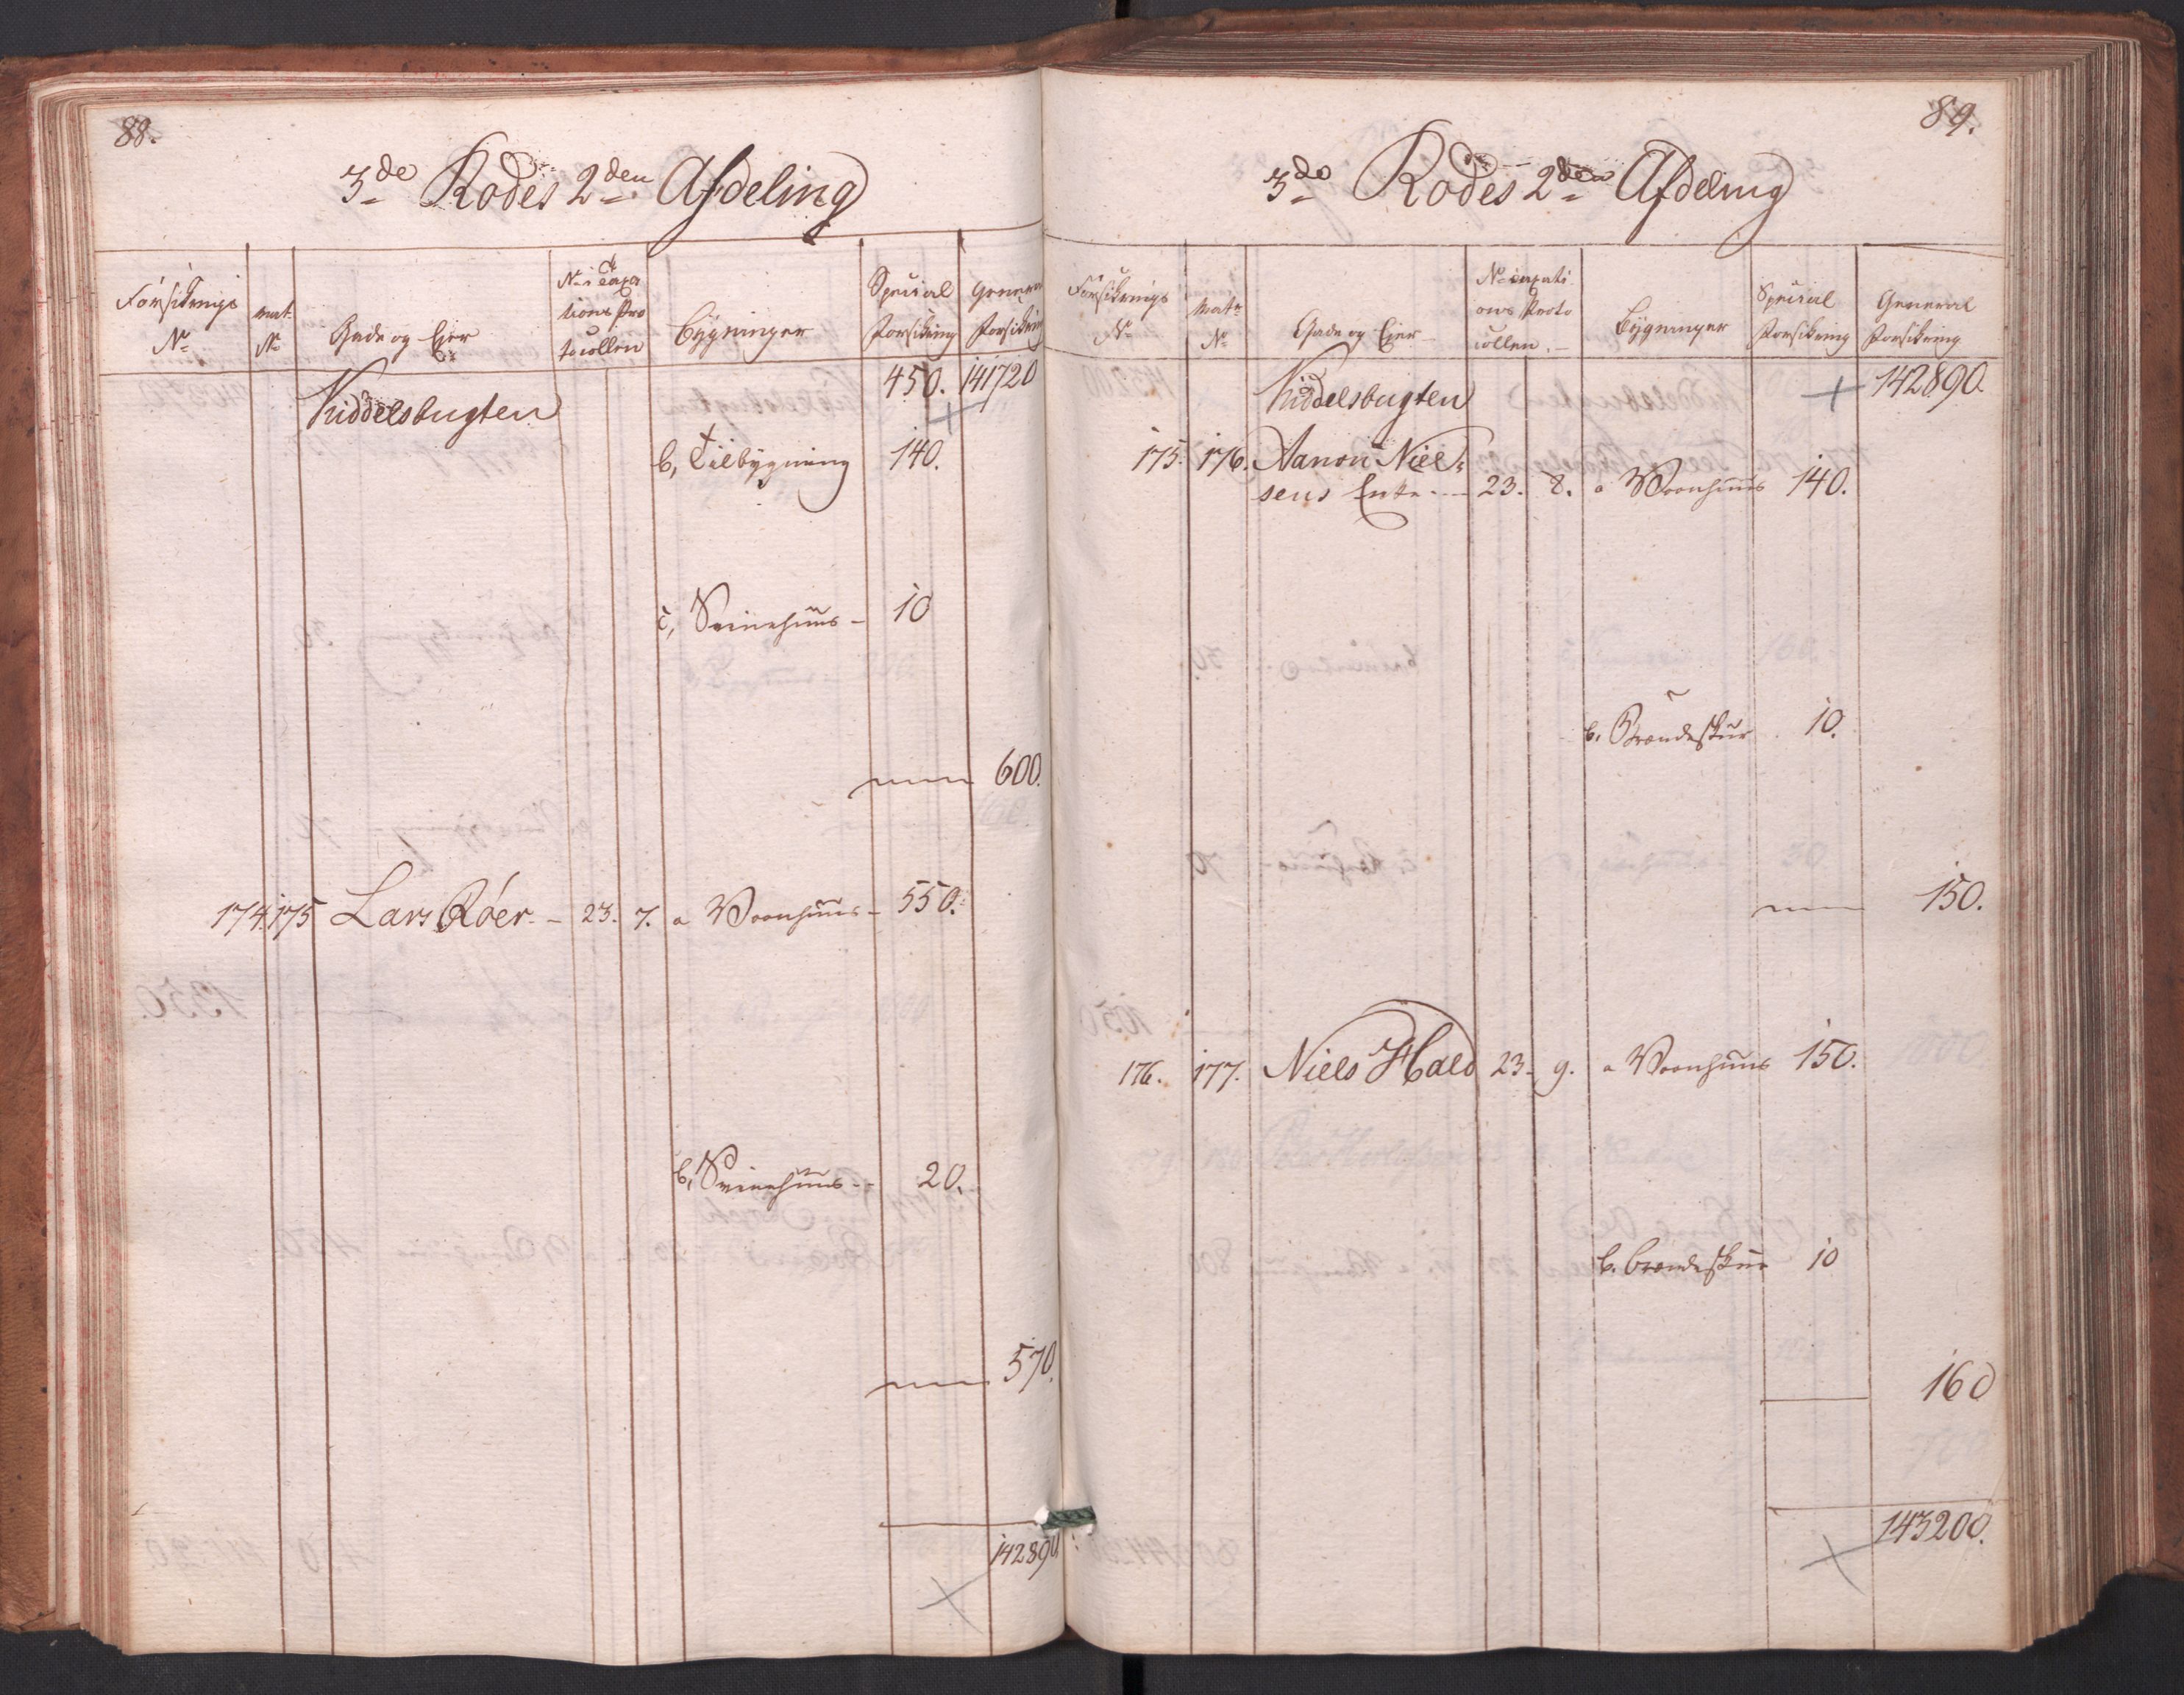 88.
3de Rodes 2den Afdeling
Forsikrings No
mat. No
Gade og Eier
No i Taxa
tions Pro
tocollen
Bÿgninger
Special Forsikring
General Forsikring
Kiddelsbugten 450. 141720
b, Tilbÿgning 140.
c, Sviinehuus 10
600.
174. 175 Lars Röer - 23. 7. a Vaanhuus - 550.
b, Sviinehuus - 20.
570.
142890.
89.
3de Rodes 2den Afdeling
Forsikrings No
Mat: No
Gade og Eier
No Taxati
ons Proto
collen.
Bÿgninger
Special Forsikring
General Forsikring
Kiddelsbugten 142890.
175. 176. Aanon Niel-
sens Enke 23. 8. a Vaanhuus 140.
b. Brændeskur 10.
150.
176. 177. Niels Hald 23. 9. a Vaanhuus 150.
b. brændeskur 10
160
143200.